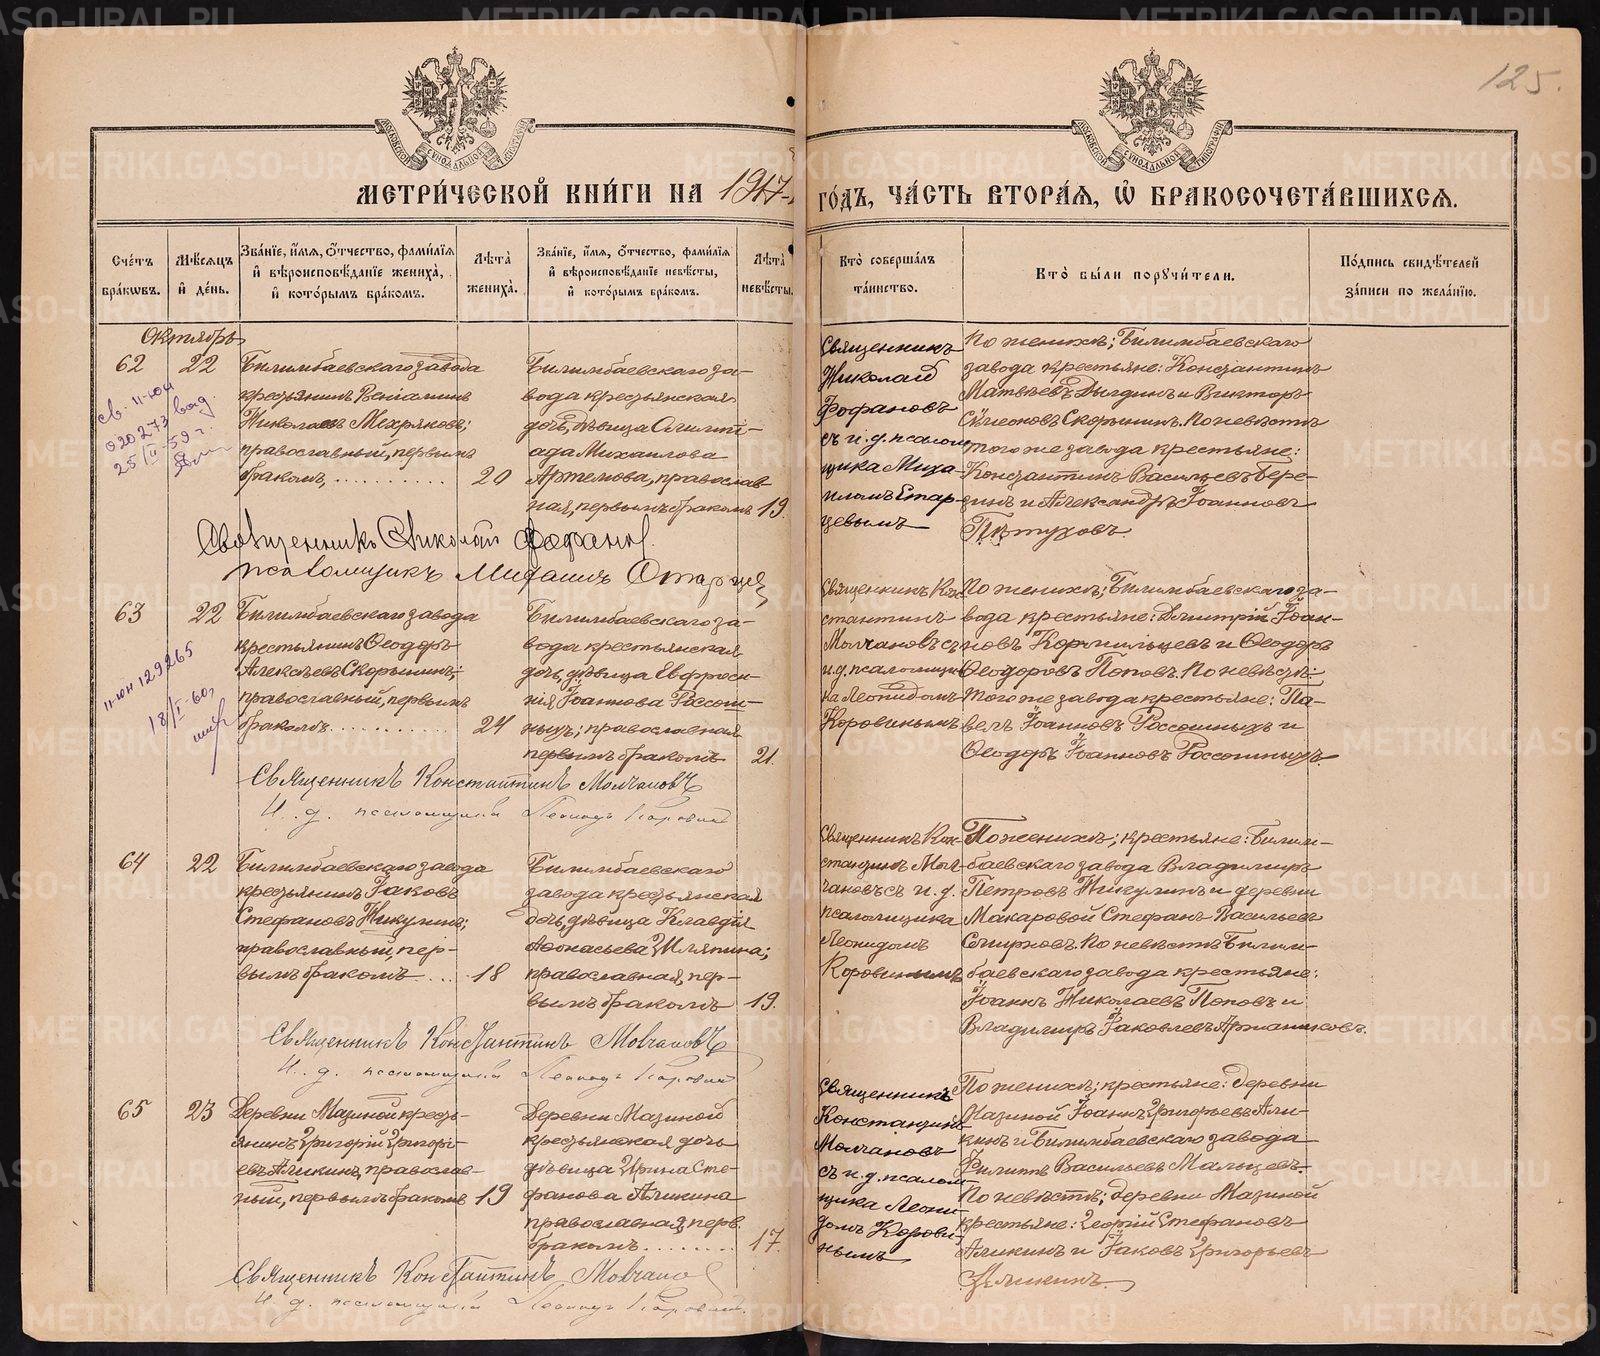 125.
МЕТРИЧЕСКОЙ КНИГИ НА 1917-
ГОДЪ, ЧАСТЬ ВТОРАЯ, Ѽ БРАКОСОЧЕТАВШИХСЯ.
Счетъ браковъ.
Мѣсяцъ и день.
Званіе, имя, отчество, фамилія и вѣроисповѣданіе жениха, и которымъ бракомъ.
Лѣта жениха.
Званіе, имя, отчество, фамилія и вѣроисповѣданіе невѣсты, и которымъ бракомъ.
Лѣта невѣсты.
Кто совершалъ таинство.
Кто были поручители.
Подпись свидѣтелей записи по желанію.
Октябрь
62
22
Билимбаевскаго завода
крестьянинъ Веніаминъ
Николаевъ Мехряковъ;
православный, первымъ
бракомъ, ..........
20
Билимбаевскаго за-
вода крестьянская
дочь, дѣвица Олимпі-
ада Михаилова
Артемова, православ-
ная, первымъ бракомъ
19.
Священникъ
Николай
Фофановъ
съ и. д. псалом-
щика Миха-
иломъ Стар-
цевымъ
По женихѣ; Билимбаевскаго
завода крестьяне: Константинъ
Матвѣевъ Дылдинъ и Викторъ
Симеоновъ Скорынинъ. По невѣстѣ
того же завода крестьяне:
Константинъ Васильевъ Бере-
зинъ и Александръ Іоанновъ
Пѣтуховъ.
св. II-юн
020273 выд.
25/II-59 г.
Священникъ Николай Фофановъ.
псаломщикъ Михаилъ Старцев
63
22
Билимбаевскаго завода
крестьянинъ Ѳеодоръ
Алексѣевъ Скорынинъ;
православный, первымъ
бракомъ............
24
Билимбаевскаго за-
вода крестьянская
дочь, дѣвица Евфроси-
нія Іоаннова Россош-
ныхъ; православная
первымъ бракомъ
21.
Священникъ Кон-
стантинъ
Молчановъ съ
и. д. псаломщи-
ка Леонидомъ
Коровинымъ
По женихѣ; Билимбаевскаго за-
вода крестьяне: Димитрій Іоан-
новъ Кормильцевъ и Ѳеодоръ
Ѳеодоровъ Поповъ. По невѣстѣ:
того же завода крестьяне: Па-
велъ Іоанновъ Россошныхъ и
Ѳеодоръ Іоанновъ Россошныхъ
II-юн 129265
18/I-60,
Священникъ Константинъ Молчановъ
И. д. псаломщика Леонидъ Коровин
64
22
Билимбаевскаго завода
крестьянинъ Іаковъ
Стефановъ Никулинъ;
православный, пер-
вымъ бракомъ ....
18
Билимбаевскаго
завода крестьянская
дочь, дѣвица Клавдія
Аѳонасьева Шляпина;
православная, пер-
вымъ бракомъ
19.
Священникъ Кон-
стантинъ Мол-
чановъ съ и. д.
псаломщика
Леонидомъ
Коровинымъ
По женихѣ; крестьяне: Билим-
баевскаго завода Владимиръ
Петровъ Никулинъ и деревни
Макаровой Стефанъ Васильевъ
Смирновъ. По невѣстѣ Билим-
баевскаго завода крестьяне:
Іоаннъ Николаевъ Поповъ и
Владимиръ Іаковлевъ Аржанниковъ.
Священникъ Константинъ Молчановъ
И. д. псаломщика Леонидъ Коровин
65
23
Деревни Мазиной кресть-
янинъ Григорій Григорі-
евъ Аликинъ, православ-
ный, первымъ бракомъ
19
Деревни Мазиной
крестьянская дочь
дѣвица Ирина Сте-
фанова Аликина
православная, перв.
бракомъ........
17.
Священникъ
Константинъ
Молчановъ
съ и. д. псалом-
щика Леони-
домъ Корови-
нымъ
По женихѣ; крестьяне: деревни
Мазиной Іоаннъ Григорьевъ Али-
кинъ и Билимбаевскаго завода
Филиппъ Васильевъ Мальцевъ.
По невѣстѣ; деревни Мазиной
крестьяне: Георгій Стефановъ
Аликинъ и Іаковъ Григорьевъ
Аликинъ.
Священникъ Константинъ Молчанов
И. д. псаломщика Леонидъ Коровин.
METRIKI.GASO-URAL.RU